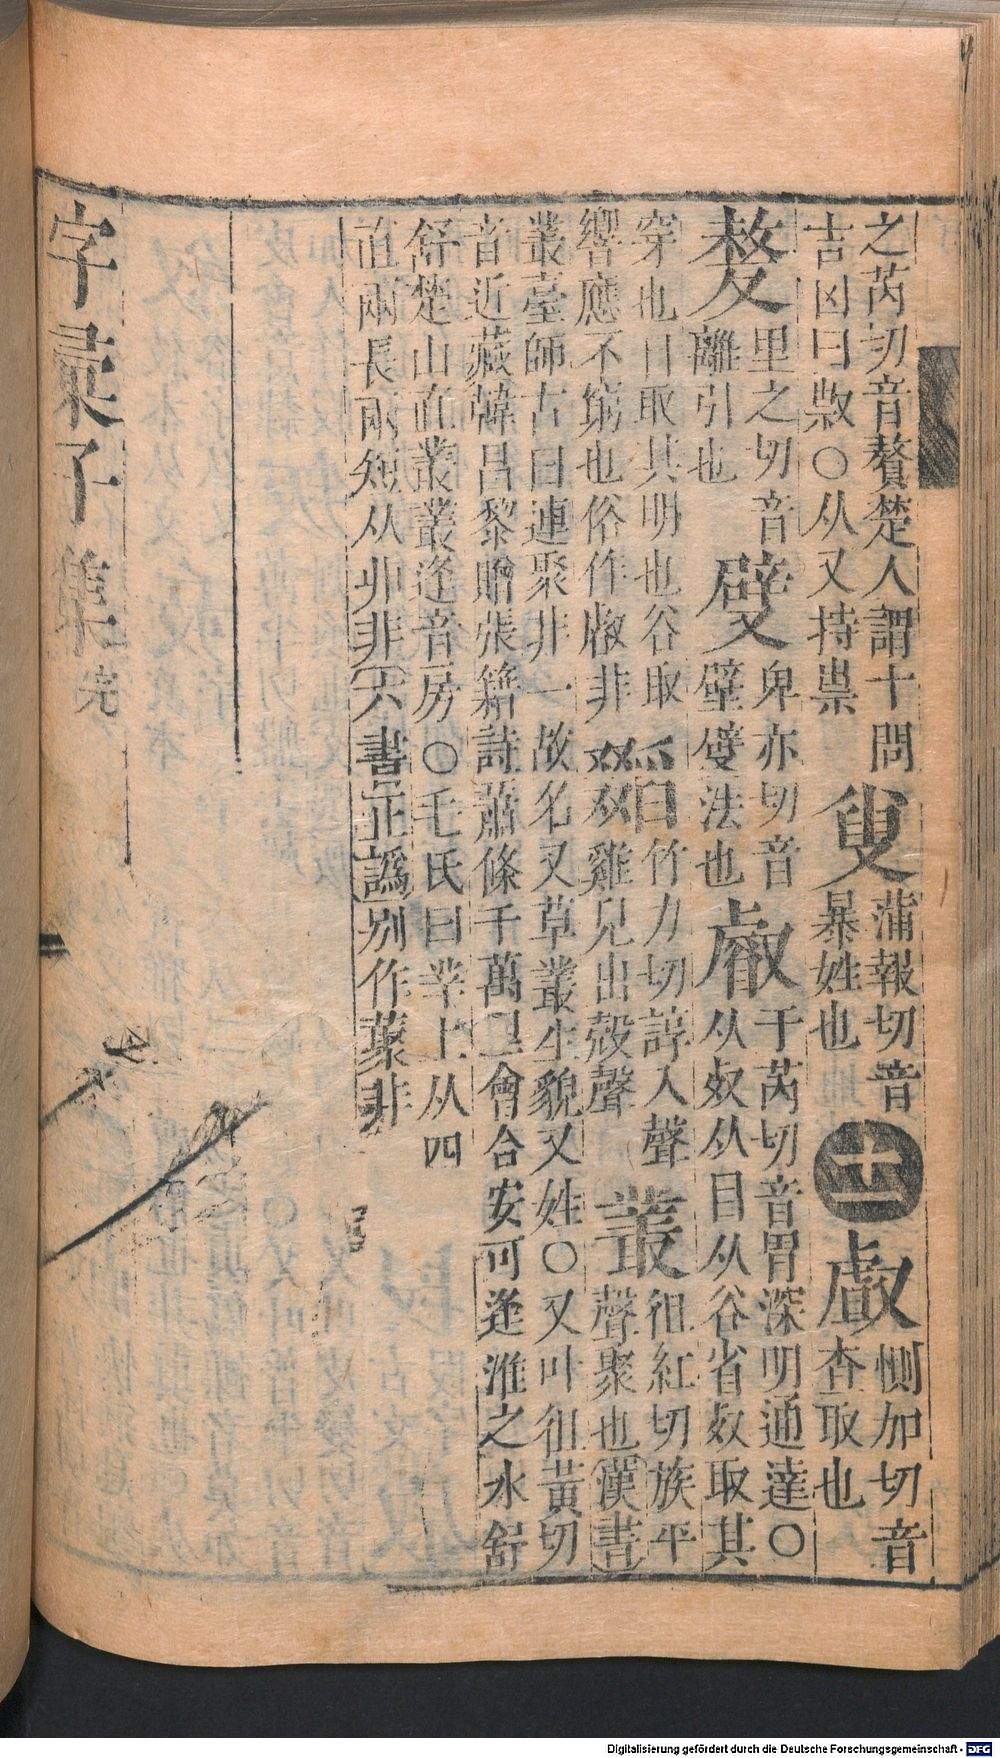 之芮切音贅楚人謂十問
吉凶曰㱁○从又持祟
㕝蒲報切音
暴姓也
十一
㪥側加切音
査取也
嫠里之切音
離引也
㡀卑亦切音
璧㢠法也
叡于芮切音胃深明通達○
从𣦻从目从谷省𣦻取其
穿也目取其明也谷取
響應不窮也俗作𠭴非
竹力切諄入聲
雞兒出殼聲
叢徂紅切族平
聲聚也漢書
叢臺師古曰連聚非一故名又草叢生貌又姓○又叶徂黃切
音近藏韓昌黎贈張籍詩蕭條千萬里會合安可逢淮之水舒
舒楚山直叢叢逢音房○毛氏曰丵上从四
直兩長兩短从丱非六書正譌別作藂非
字彙子集完
Digitalisierung gefördert durch die Deutsche Forschungsgemeinschaft - DFG